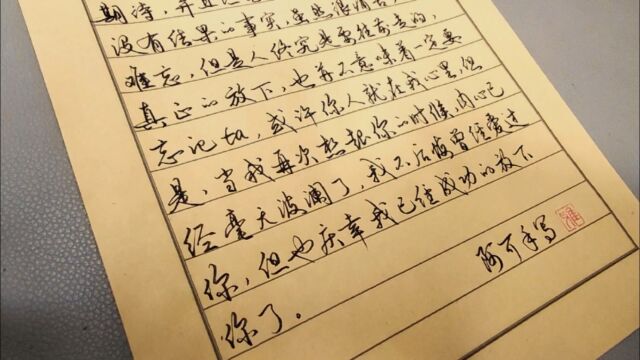 期待，并且
没有结果的事实，虽然很
难忘，但是人终究是要往前走的，
真正的放下，也并不意味着一定要
忘记ta，或许你人就在我心里，但
是，当我再次想起你的时候，内心已
经毫无波澜了，我不后悔曾经爱过
你，但也庆幸我已经成功的放下
你了。
阿可手写